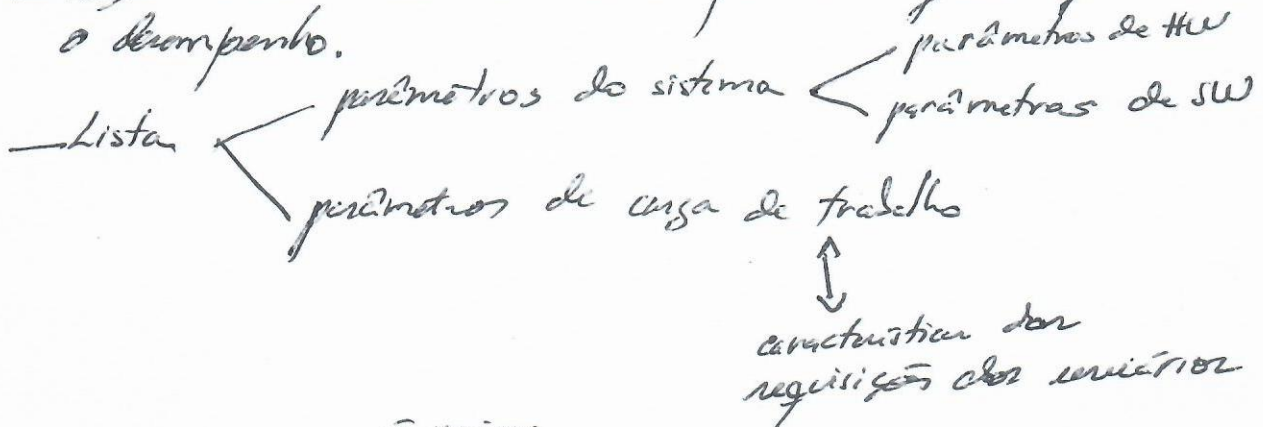 o desempenho.
parâmetros de HW
parâmetros do sistema
parâmetros de SW
— Lista
parâmetros de carga de trabalho
características das
requisições dos usuários